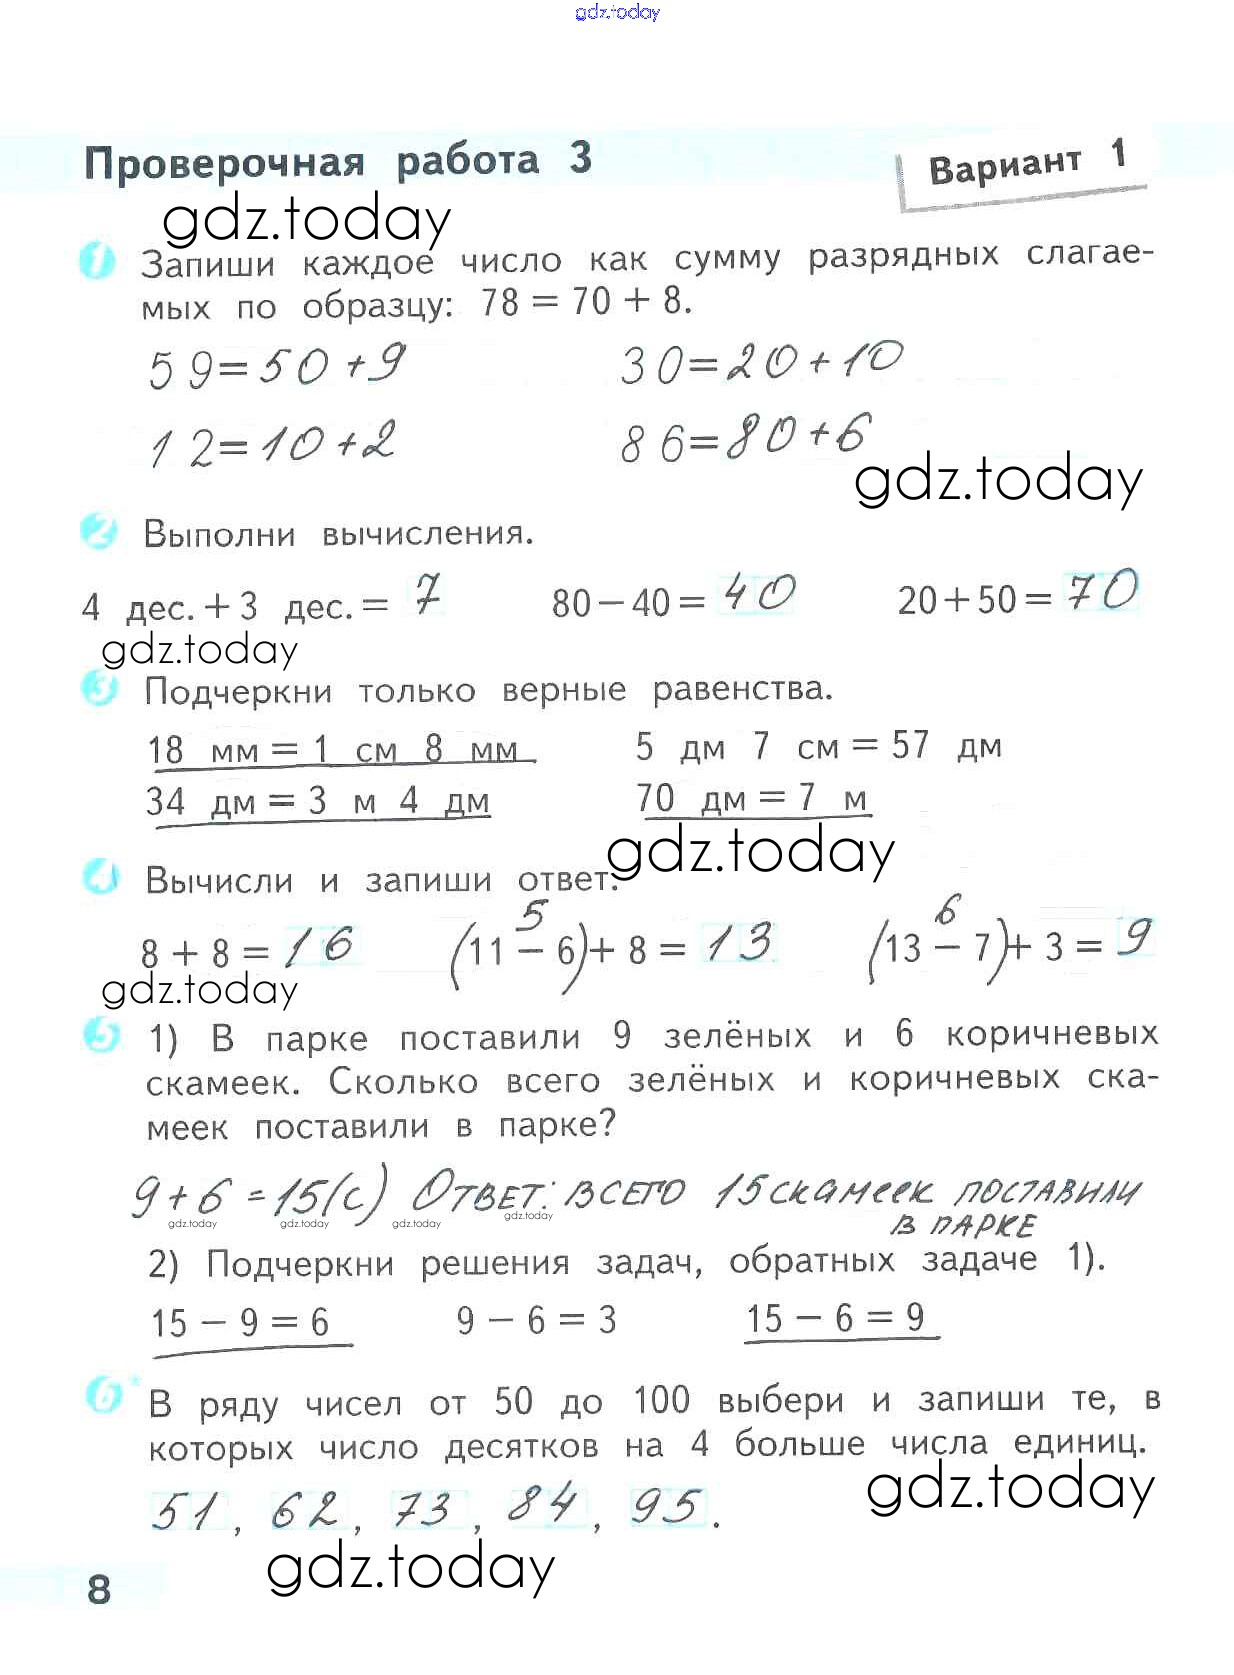 gdz.today
Проверочная работа 3
Вариант 1
gdz.today
1 Запиши каждое число как сумму разрядных слагае-
мых по образцу: 78 = 70 + 8.
59=50+9 30=20+10
12=10+2 86=80+6
gdz.today
2 Выполни вычисления.
4 дес. + 3 дес. = 7 80 − 40 = 40 20 + 50 = 70
gdz.today
3 Подчеркни только верные равенства.
18 мм = 1 см 8 мм 5 дм 7 см = 57 дм
34 дм = 3 м 4 дм 70 дм = 7 м
gdz.today
4 Вычисли и запиши ответ.
5 6
8 + 8 = 16 (11 − 6) + 8 = 13 (13 − 7) + 3 = 9
gdz.today
5 1) В парке поставили 9 зелёных и 6 коричневых
скамеек. Сколько всего зелёных и коричневых ска-
меек поставили в парке?
9+6=15(с) Ответ: всего 15 скамеек поставили
в парке
gdz.today gdz.today gdz.today gdz.today
2) Подчеркни решения задач, обратных задаче 1).
15 − 9 = 6 9 − 6 = 3 15 − 6 = 9
6* В ряду чисел от 50 до 100 выбери и запиши те, в
которых число десятков на 4 больше числа единиц.
gdz.today
51, 62, 73, 84, 95.
gdz.today
8